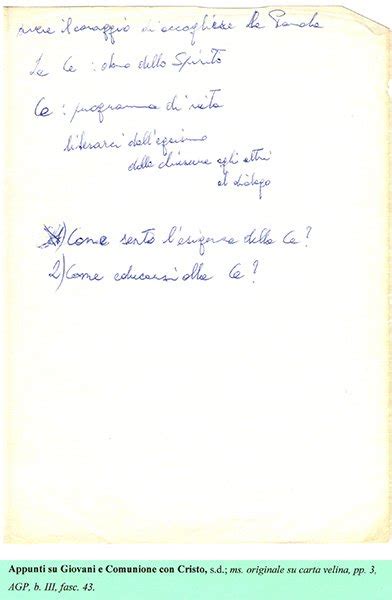 avere il coraggio di accogliere la Parola
La Co : dono dello Spirito
Co : programma di vita
liberarci dall'egoismo
dalla chiusura agli altri
al dialogo
1) Come sento l'esigenza della Co?
2) Come educarsi alla Co?
Appunti su Giovani e Comunione con Cristo, s.d.; ms. originale su carta velina, pp. 3,
AGP, b. III, fasc. 43.